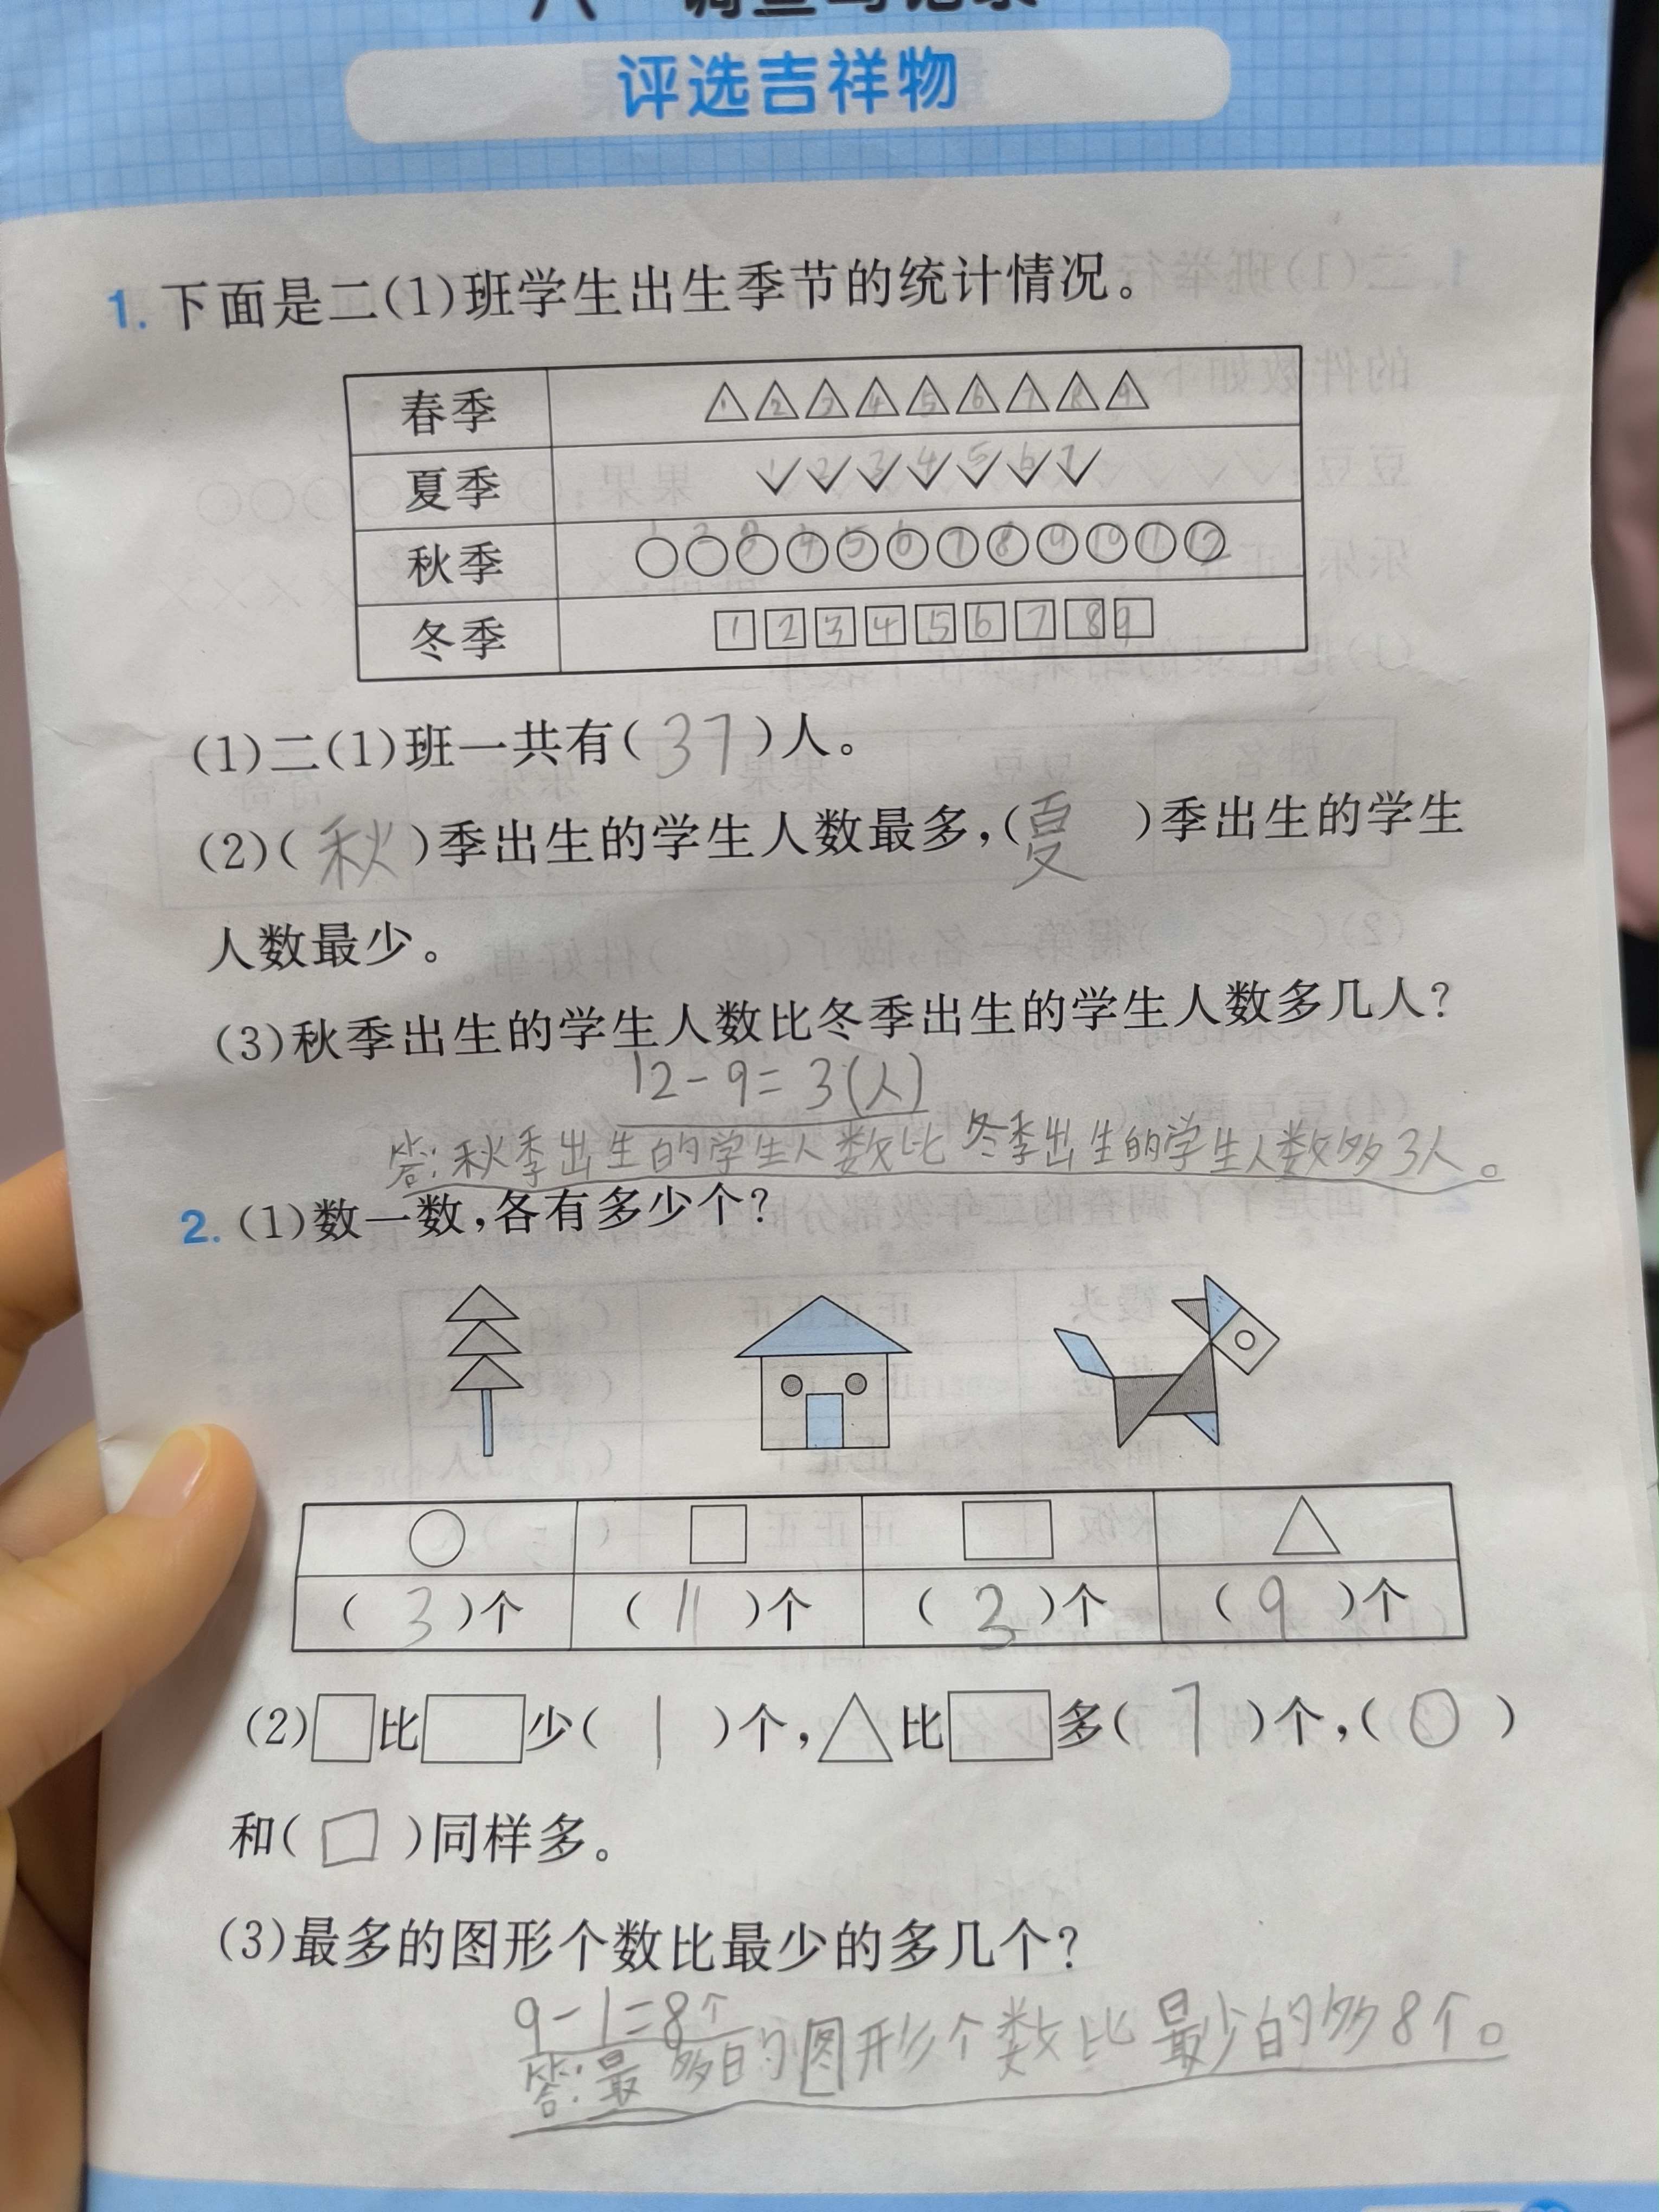 评选吉祥物
1. 下面是二(1)班学生出生季节的统计情况。
春季 △1△2△3△4△5△6△7△8△9
夏季 ✓1✓2✓3✓4✓5✓6✓7
秋季 ○1○2○3○4○5○6○7○8○9○10○11○12
冬季 □1□2□3□4□5□6□7□8□9
(1)二(1)班一共有(37)人。
(2)(秋)季出生的学生人数最多,(夏)季出生的学生
人数最少。
(3)秋季出生的学生人数比冬季出生的学生人数多几人?
12-9=3(人)
答:秋季出生的学生人数比冬季出生的学生人数多3人。
2. (1)数一数,各有多少个?
○ □ ▭ △
(3)个 (11)个 (2)个 (9)个
(2)□比▭少(1)个,△比▭多(7)个,(○)
和(□)同样多。
(3)最多的图形个数比最少的多几个?
9-1=8个
答:最多的图形个数比最少的多8个。